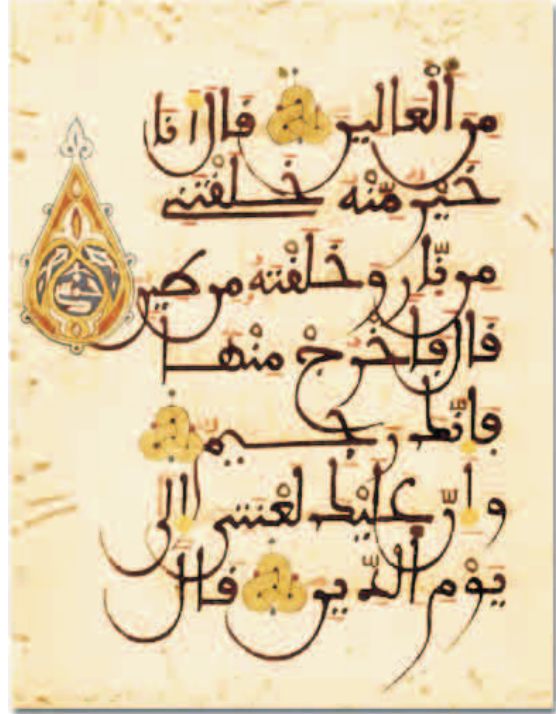 مِنَ ٱلْعَالِينَ قَالَ أَنَا
خَيْرٌ مِّنْهُ خَلَقْتَنِى
مِن نَّارٍ وَخَلَقْتَهُۥ مِن طِينٍ
قَالَ فَٱخْرُجْ مِنْهَا
فَإِنَّكَ رَجِيمٌ
وَإِنَّ عَلَيْكَ لَعْنَتِى إِلَىٰ
يَوْمِ ٱلدِّينِ قَالَ